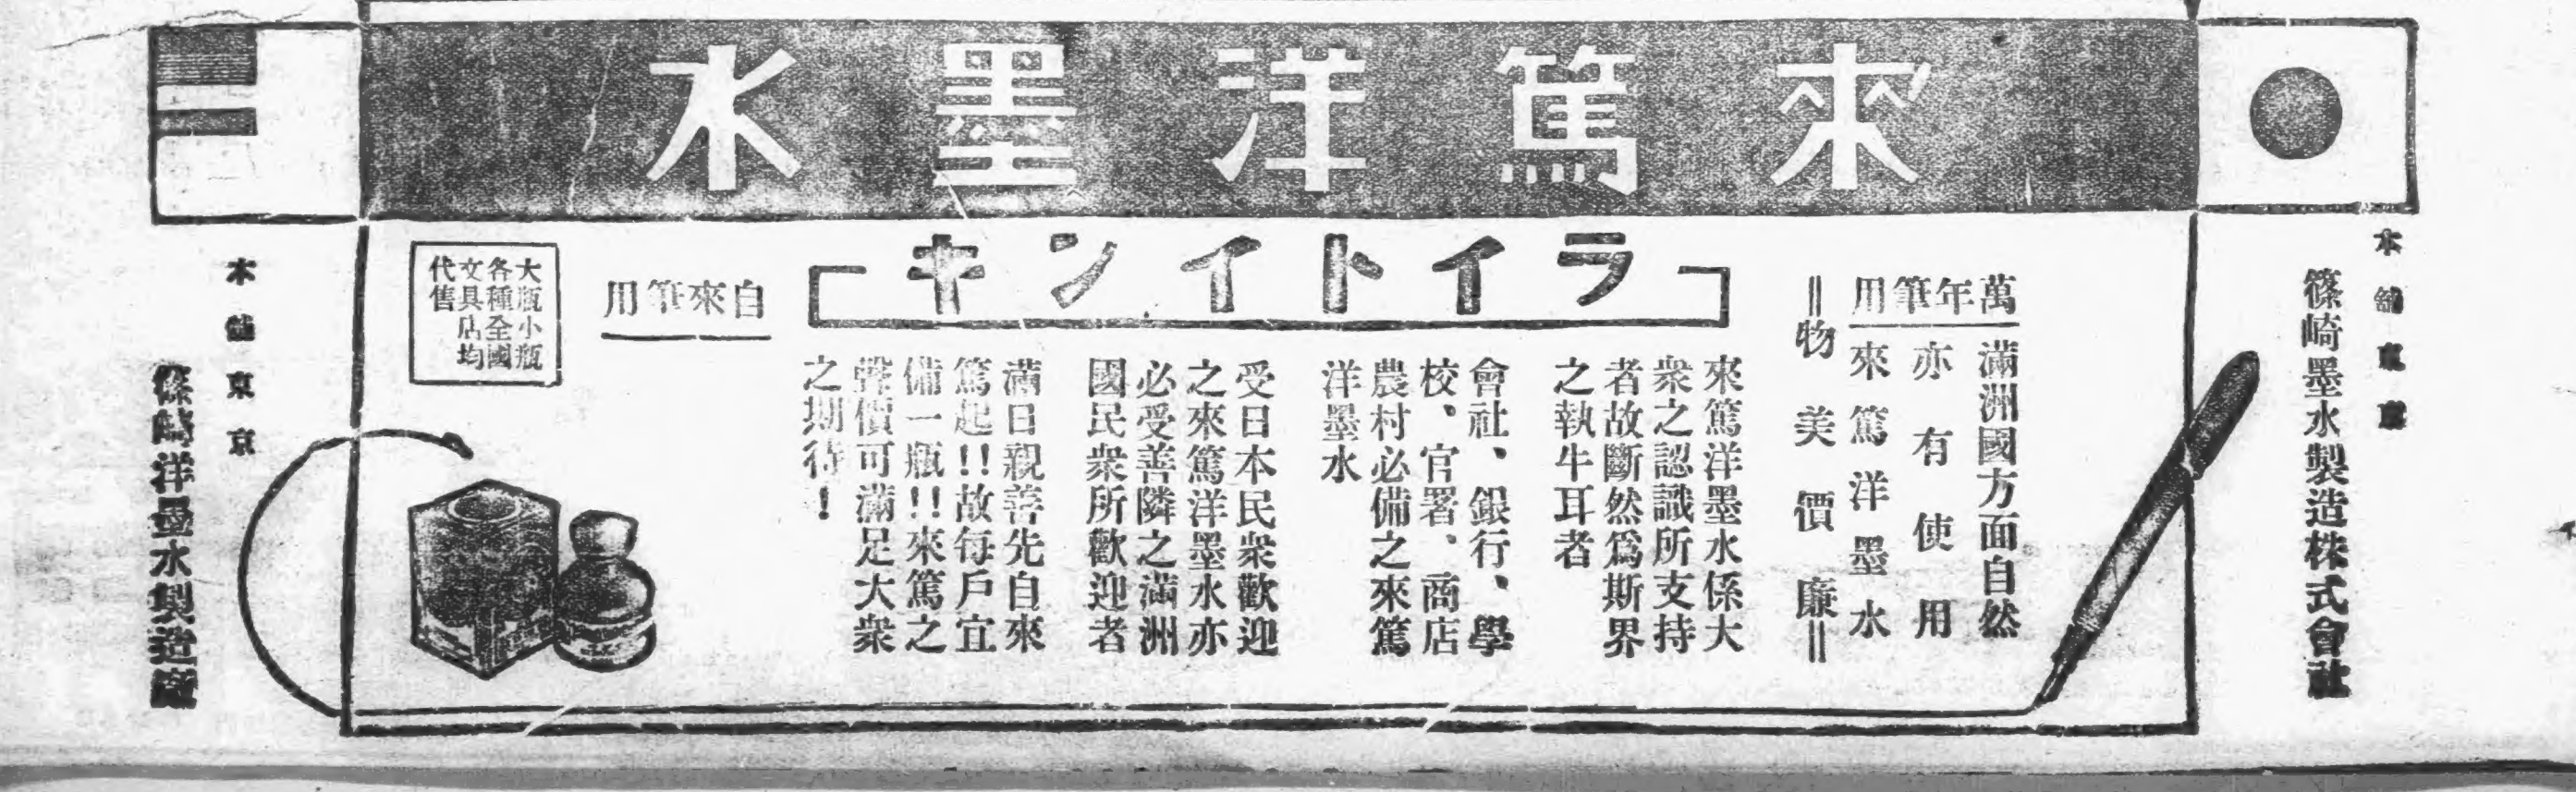 來篤洋墨水
本舖東京
篠崎墨水製造株式會社
萬年筆用
滿洲國方面自然
亦有使用
來篤洋墨水
＝物美價廉＝
ライトインキ
來篤洋墨水係大
衆之認識所支持
者故斷然爲斯界
之執牛耳者
會社、銀行、學
校、官署、商店
農村必備之來篤
洋墨水
受日本民衆歡迎
之來篤洋墨水亦
必受善隣之滿洲
國民衆所歡迎者
滿日親善先自來
篤起!!故每戶宜
備一瓶!!來篤之
聲價可滿足大衆
之期待！
自來筆用
大瓶小瓶
各種全國
文具店均
代售
本舖東京
篠崎洋墨水製造廠